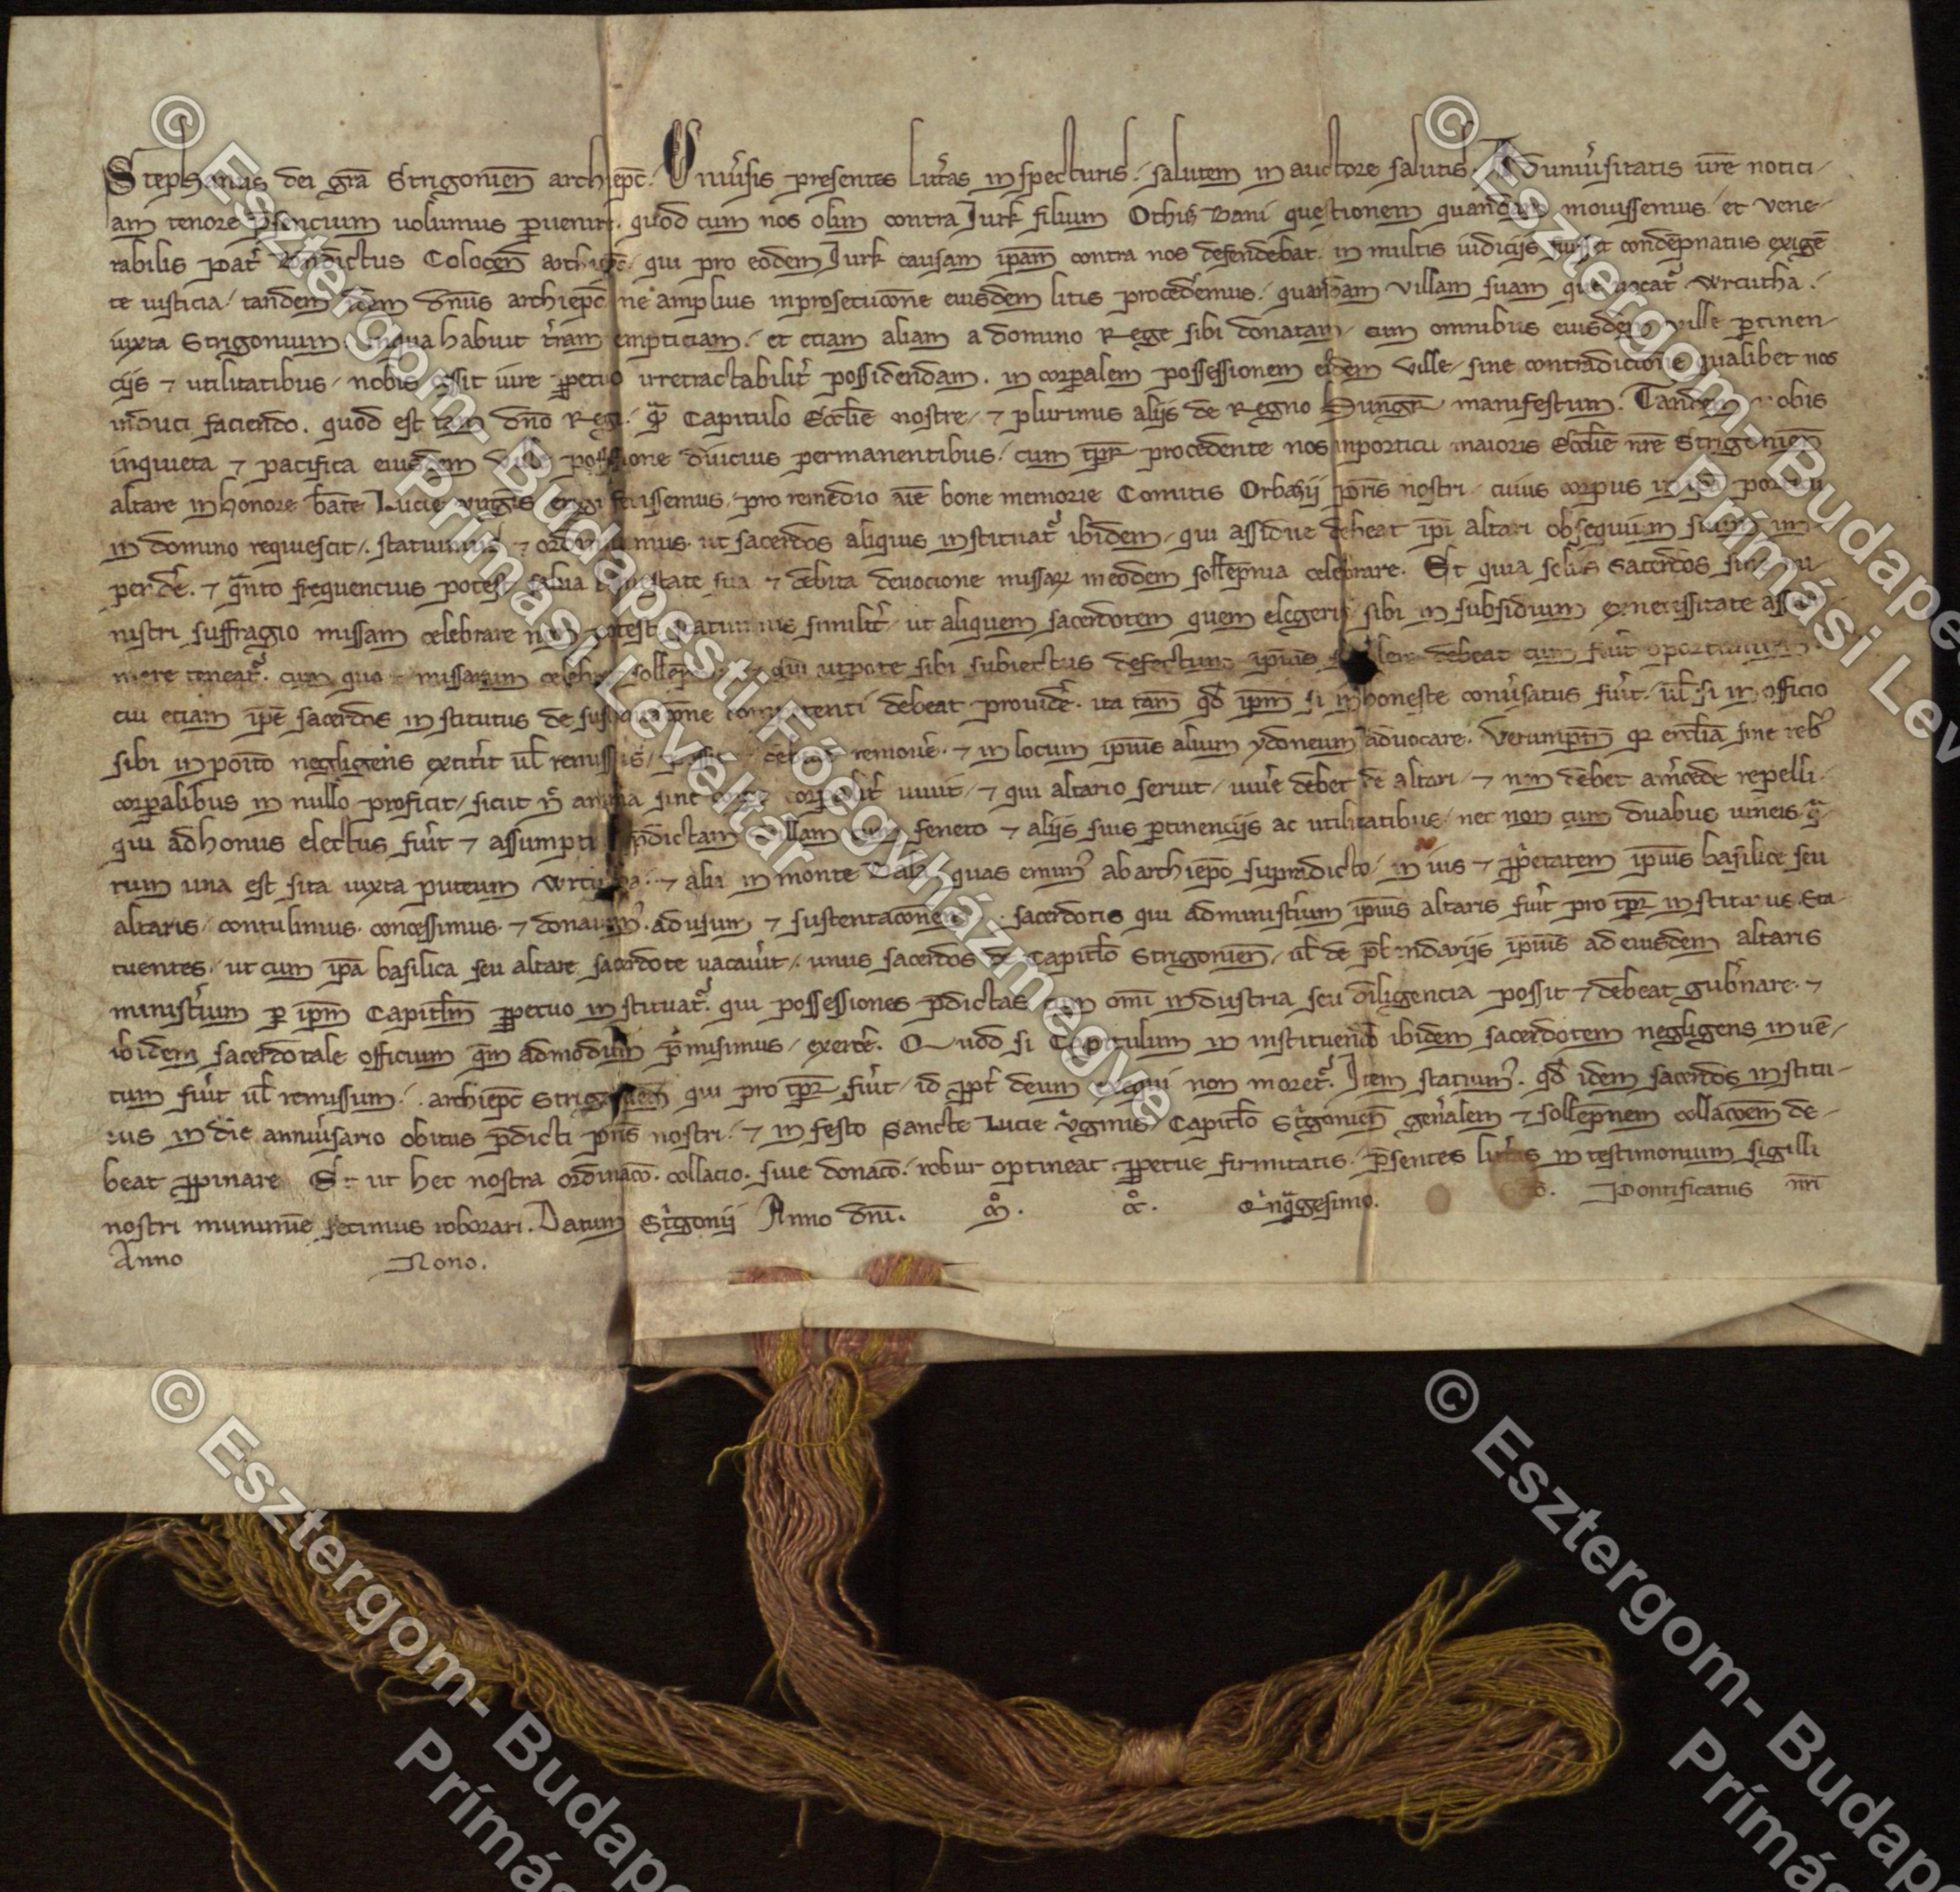 Stephanus dei gr̄a Strigonien̄ archiep̄c. Vniu̓sis presentes litt̓as inspecturis. salutem in auctore salutis. Aduniu̓sitatis ūre notici-
am tenore p̄sencium uolumus peruenire. quod cum nos olim contra Iurk filium Othis Bani questionem quandam mouissemus. et vene-
rabilis pat̓ B̄ndictus Colocen̄ archiep̄c qui pro eodem Iurk causam ip̄am contra nos defendebat. in multis iudicijs fuisset condēpnatus exigē-
te iusticia. tandem idem dn̄us archiep̄c ne amplius in prosecucōne eiusdem litis procederemus. quandam villam suam que uocat̉ wrcutha.
iuxta Strigonium in qua habuit t̓ram empticiam. et etiam aliam a domino Rege sibi donatam cum omnibus eiusdem ville ꝑtinen-
cijs ⁊ utilitatibus. nobis cessit iure ꝑpetuo irretractabilit̓ possidendam. in corꝑalem possessionem eiusdem ville sine contradicione qualibet nos
induci faciendo. quod est tam dn̄o Regi. q̄ Capitulo Eccl̄ie nostre. ⁊ plurimis alijs de Regno Hungar̄ manifestum. Tandem nobis
in quieta ⁊ pacifica eiusdem ville possessione diucius permanentibus. cum tp̄r procedente nos in porticu maioris Eccl̄ie nr̄e Strigonien̄
altare in honore b̄ate Lucie uirgīs erigi fecissemus. pro remedio aīe bone memorie Comitis Orbazij pr̄is nostri. cuius corpus in ip̄a porticu
in domino requiescit. statuimus ⁊ ordinauimus. ut sacerdos aliquis instituat̉ ibidem. qui assidue debeat ip̄i altari obsequium suum im-
pendere. ⁊ q̄nto frequencius potest salua honestate sua ⁊ debita deuocione missarum in eodem soll̄epnia celebrare. Et quia solus sacerdos sine mi-
nistri suffragio missam celebrare non potest. statuimus similit̓ ut aliquem sacerdotem quem elegerit sibi in subsidium ex necessitate assu-
mere teneat̉. cum quo missarum celebret soll̄epnia. ⁊ qui utpote sibi subiectus defectum ip̄ius supplere debeat cum fu̓it oportunum.
cui etiam ip̄e sacerdos institutus de sustentacōne competenti debeat prouidere. ita tam̄ qd̄ ip̄m si inhoneste conu̓satus fu̓it. ul̄ si in officio
sibi inpoīto negligens extit̓it ul̄ remissus, possit ⁊ debeat remouere. ⁊ in locum ip̄ius alium ydoneum aduocare. Verumptn̄ qr̄ eccl̄ia sine rebus
corꝑalibus in nullo proficit, sicut n̄ anima sine corpore corporalit̓ uiuit, ⁊ qui altario seruit, uiu̓e debet de altari, ⁊ non debet a m̓cede repelli
qui ad honus electus fu̓it ⁊ assumptus p̄dictam villam cum feneto ⁊ alijs suis ꝑtinencijs ac utilitatibus, nec non cum duabus uineis. q̄-
rum una est sita iuxta puteum wrcutha. ⁊ alia in monte Bala quas emim̉ ab archiep̄o supradicto, in ius ⁊ ꝓprietatem ip̄ius basilice seu
altaris, contulimus. concessimus. ⁊ donauim̉. ad usum ⁊ sustentacōnem sacerdotis qui administ̓ium ip̄ius altaris fu̓it pro tp̄r institutus. Sta-
tuentes, ut cum ip̄a basilica seu altare sacerdote uacau̓it. unus sacerdos de Capitl̄o Strigonien̄, ul̄ de p̄bendarijs ip̄ius ad eiusdem altaris
minist̓ium ꝑ ip̄m Capitl̄m ꝑpetuo instituat̉. qui possessiones p̄dictas cum om̄i industria seu diligencia possit ⁊ debeat gub̓nare. ⁊
ibidem sacerdotale officium q̄m admodum p̄misimus, exercere. Quod si Capitulum in instituendo ibidem sacerdotem negligens inuē-
tum fu̓it ul̄ remissum. archiep̄c Strigonien̄ qui pro tp̄r fu̓it, id ꝓpt̓ deum exequi non moret̉. Item statuim̉. qd̄ idem sacerdos institu-
tus in die anniu̓sario obitus p̄dicti pr̄is nostri. ⁊ in festo Sancte Lucie u̓ginis Capitl̄o St̓gonien̄ gen̓alem ⁊ soll̄epnem collacōem de-
beat ꝓpinare. Et ut hec nostra ordinacō. collacio. siue donacō. robur optineat ꝑpetue firmitatis. p̄sentes litt̓as in testimonium sigilli
nostri munimīe fecimus roborari. Datum St̓gonij Anno dn̄i. m̊. cc̊. Quinq̄gesimo. Pontificatus nr̄i
Anno Nono.
© Esztergom- Budapesti Főegyházmegye
Prímási Levéltár
© Esztergom- Budape
Prímási Lev
© Esztergom- Budape
Prímás
© Esztergom- Budap
Prímás